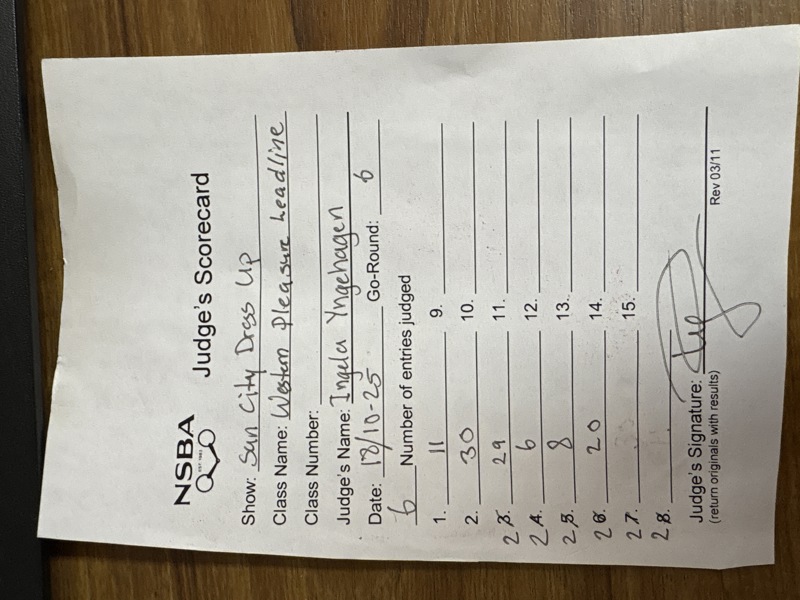 NSBA
EST 1983
Judge's Scorecard
Show: Sun City Dress Up
Class Name: Western Pleasure headline
Class Number:
Judge's Name: Ingela Yngehagen
Date: 18/10-25 Go-Round: 6
6 Number of entries judged
1. 11 9.
2. 30 10.
2 3. 29 11.
2 4. 6 12.
2 5. 8 13.
2 6. 20 14.
2 7. 15.
2 8.
Judge's Signature:
(return originals with results) Rev 03/11